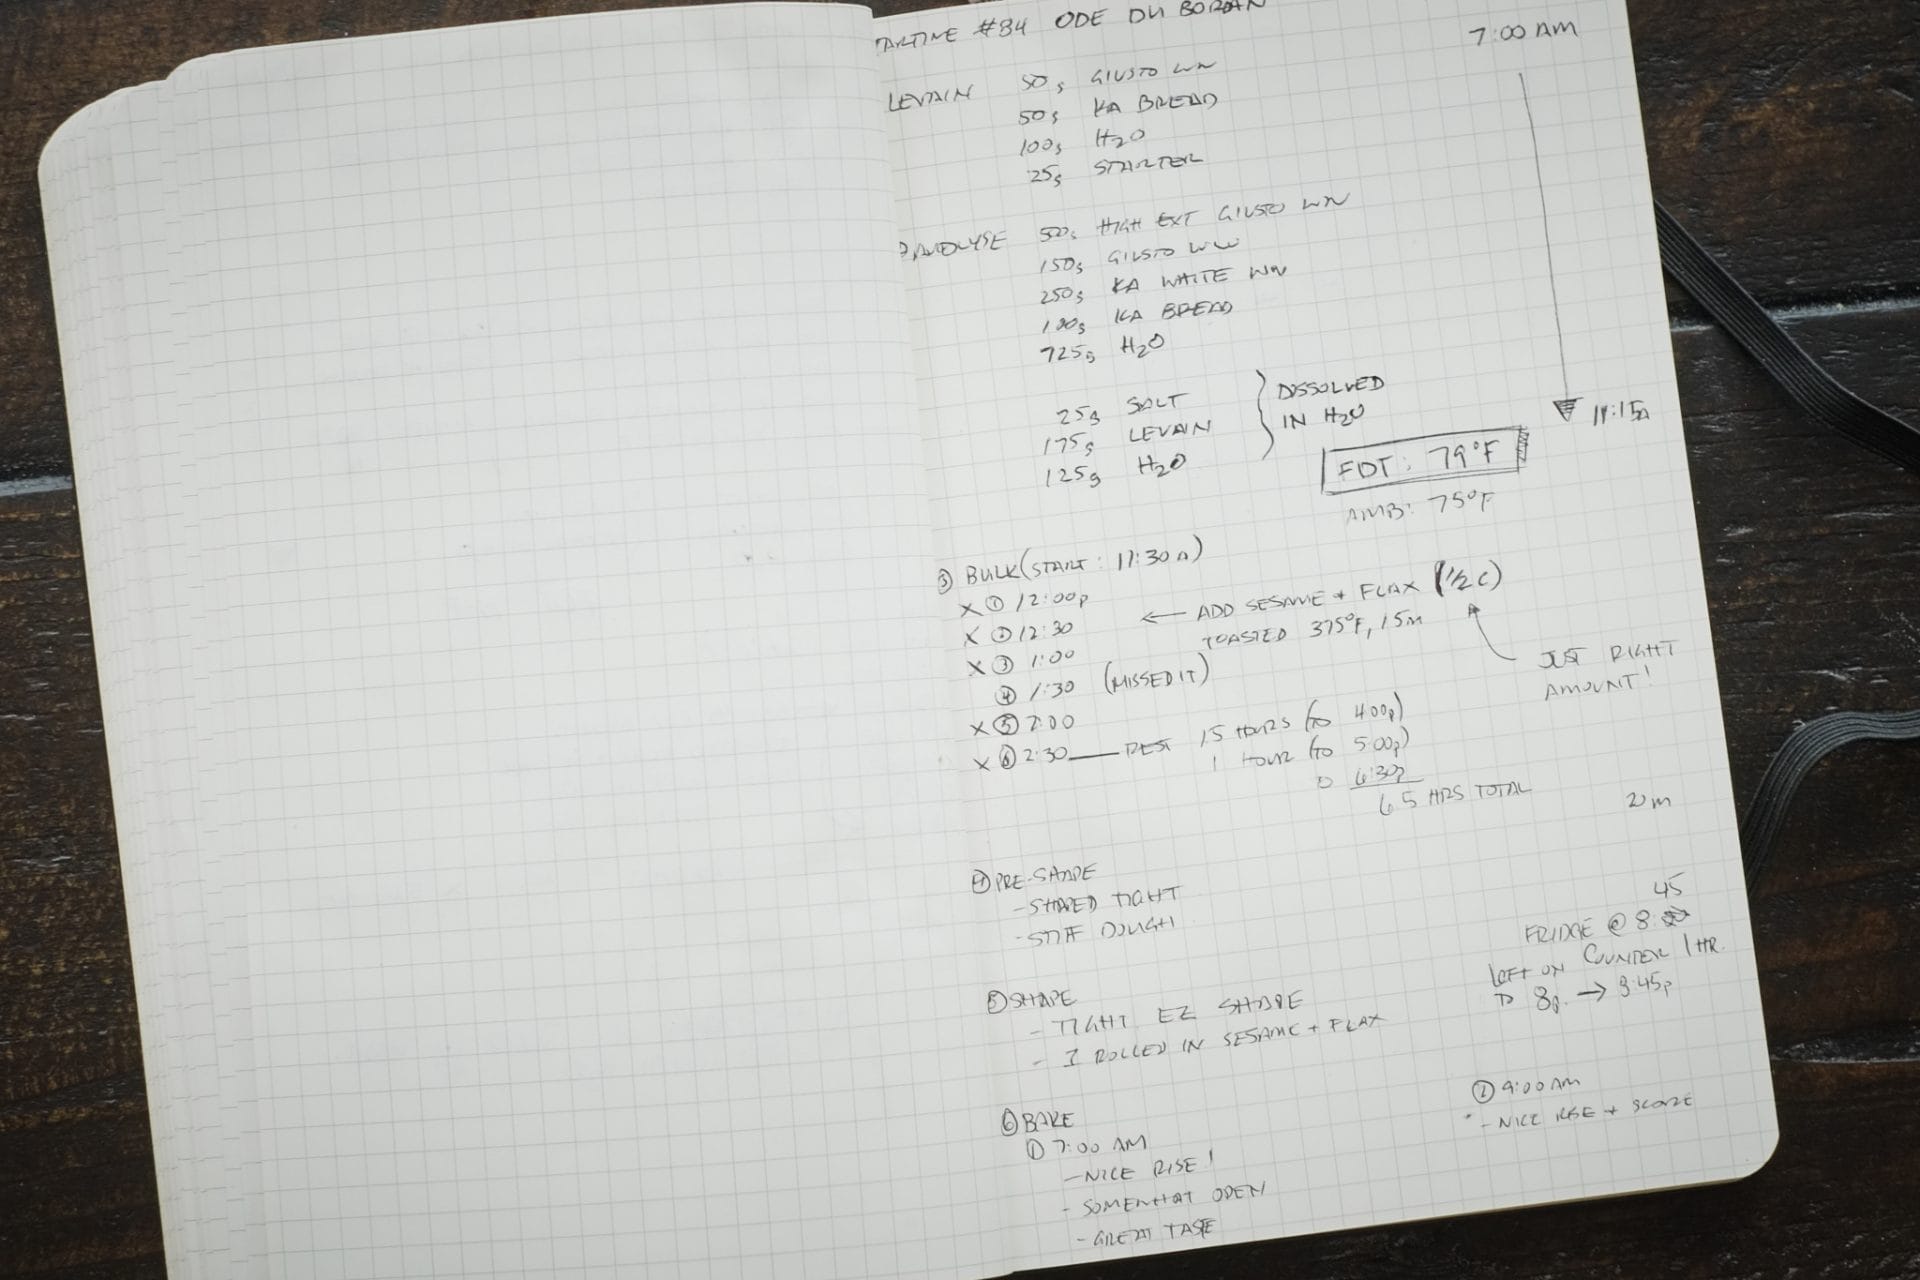 TARTINE #34 ODE DU BORDAN
7:00 AM
LEVAIN 50g GIUSTO WW
50g KA BREAD
100g H2O
25g STARTER
AUTOLYSE 500g HIGH EXT GIUSTO WW
150g GIUSTO WW
250g KA WHITE WW
100g KA BREAD
725g H2O
25g SALT
175g LEVAIN
125g H2O
DISSOLVED
IN H2O
11:15a
FDT: 79°F
AMB: 75°F
③ BULK (START: 11:30a)
X ① 12:00p
X ② 12:30
X ③ 1:00
④ 1:30 (MISSED IT)
X ⑤ 2:00
X ⑥ 2:30 — REST 1.5 HOURS (to 4:00p)
1 HOUR (to 5:00p)
6:30p
6.5 HRS TOTAL
← ADD SESAME + FLAX (1/2 C)
TOASTED 375°F, 15m
JUST RIGHT
AMOUNT!
20m
④ PRE-SHAPE
- SHAPED TIGHT
- STIFF DOUGH
45
FRIDGE @ 8:
LEFT ON COUNTER 1 HR.
TO 8p. → 8:45p
⑤ SHAPE
- TIGHT EZ SHAPE
- I ROLLED IN SESAME + FLAX
⑥ BAKE
① 7:00 AM
- NICE RISE!
- SOMEWHAT OPEN
- GREAT TASTE
② 9:00 AM
- NICE RISE + SCORE